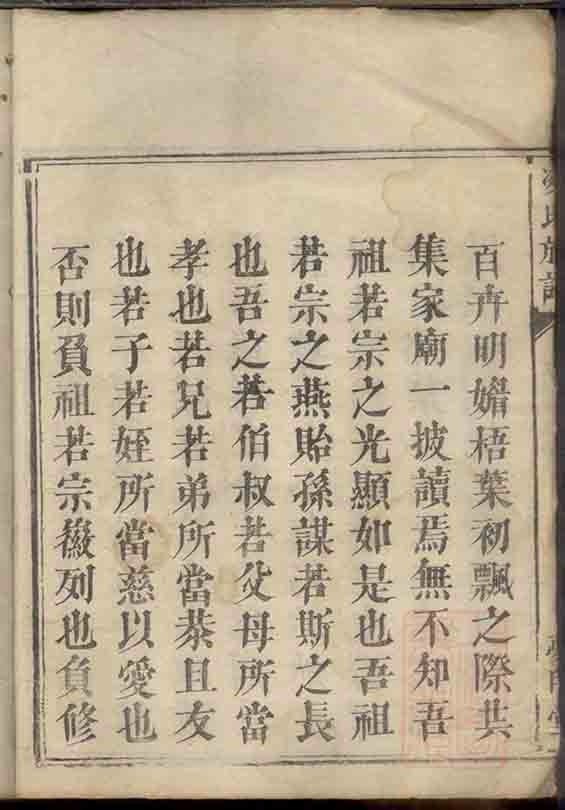 氏族譜
百卉明媚梧葉初飄之際共
集家廟一披讀焉無不知吾
祖若宗之光顯如是也吾祖
若宗之燕貽孫謀若斯之長
也吾之若伯叔若父母所當
孝也若兄若弟所當恭且友
也若子若姪所當慈以愛也
否則負祖若宗徽列也負修